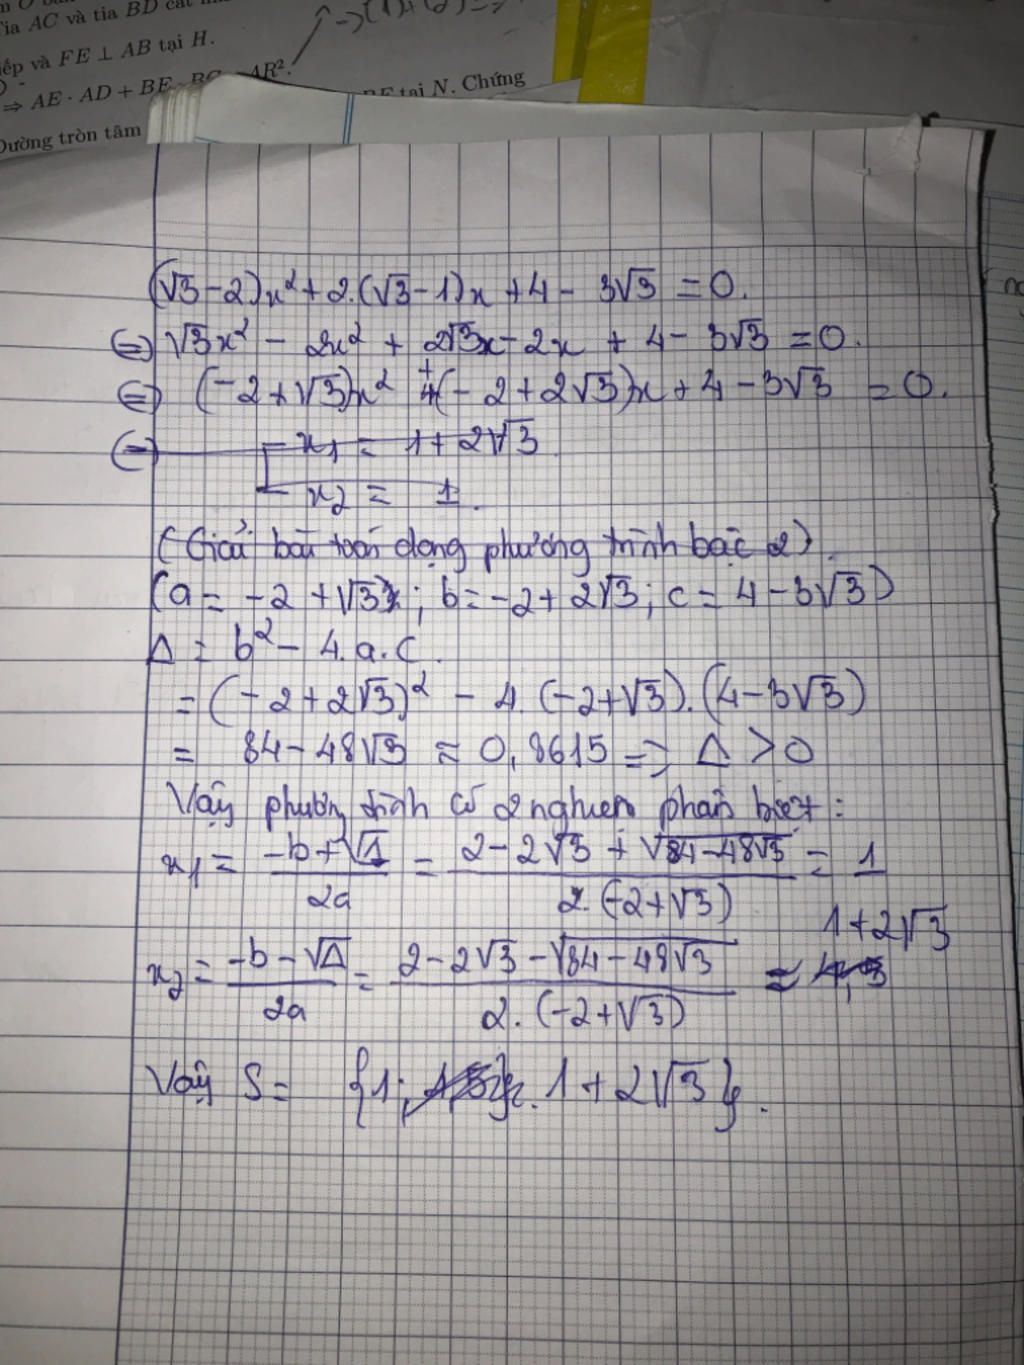 Tia AC và tia BD cắt
iếp và FE ⊥ AB tại H.
⇒ AE · AD + BE · BC = AB².
BF tại N. Chứng
Đường tròn tâm
(√3-2)x² + 2.(√3-1)x + 4 - 3√3 = 0.
⇔ √3x² - 2x² + 2√3x - 2x + 4 - 3√3 = 0.
⇔ (-2+√3)x² + (-2+2√3)x + 4 - 3√3 = 0.
⇔ x₁ = 1+2√3
x₂ = 1.
(Giải bài toán dạng phương trình bậc 2).
(a = -2 + √3; b = -2 + 2√3; c = 4 - 3√3)
Δ = b² - 4.a.c.
= (-2+2√3)² - 4.(-2+√3).(4-3√3)
= 84 - 48√3 ≈ 0,8615 => Δ > 0
Vậy phương trình có 2 nghiệm phân biệt:
x₁ = (-b+√Δ)/2a = (2-2√3+√(84-48√3))/(2.(-2+√3)) = 1
x₂ = (-b-√Δ)/2a = (2-2√3-√(84-48√3))/(2.(-2+√3)) ≈ 1+2√3
Vậy S = {1; 1+2√3}.